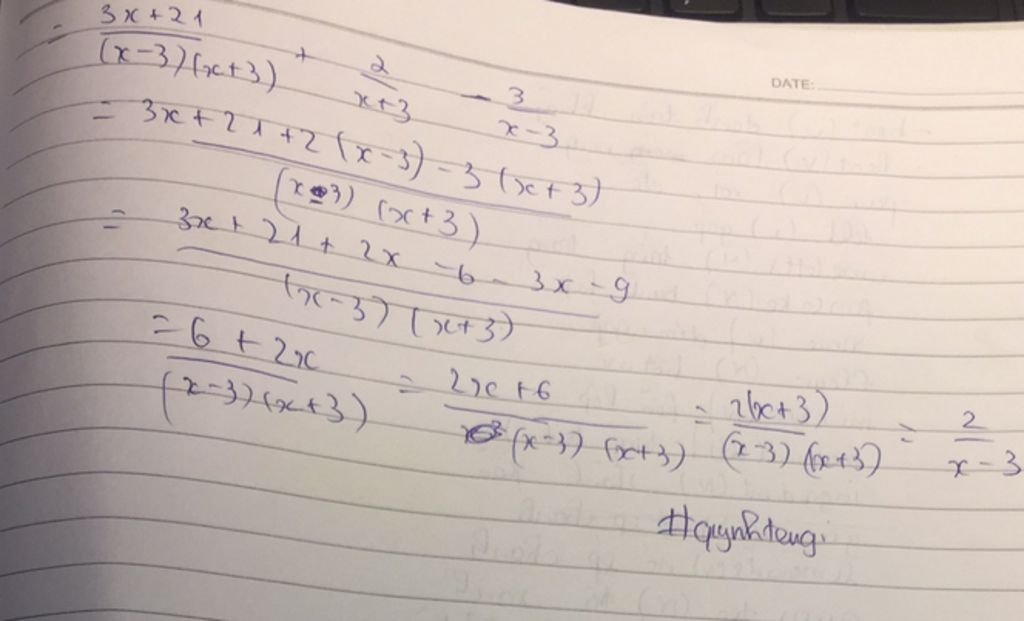 = (3x+21)/((x-3)(x+3)) + 2/(x+3) - 3/(x-3)
DATE:
= (3x+21+2(x-3)-3(x+3))/((x-3)(x+3))
= (3x+21+2x-6-3x-9)/((x-3)(x+3))
= (6+2x)/((x-3)(x+3)) = (2x+6)/((x-3)(x+3)) = (2(x+3))/((x-3)(x+3)) = 2/(x-3)